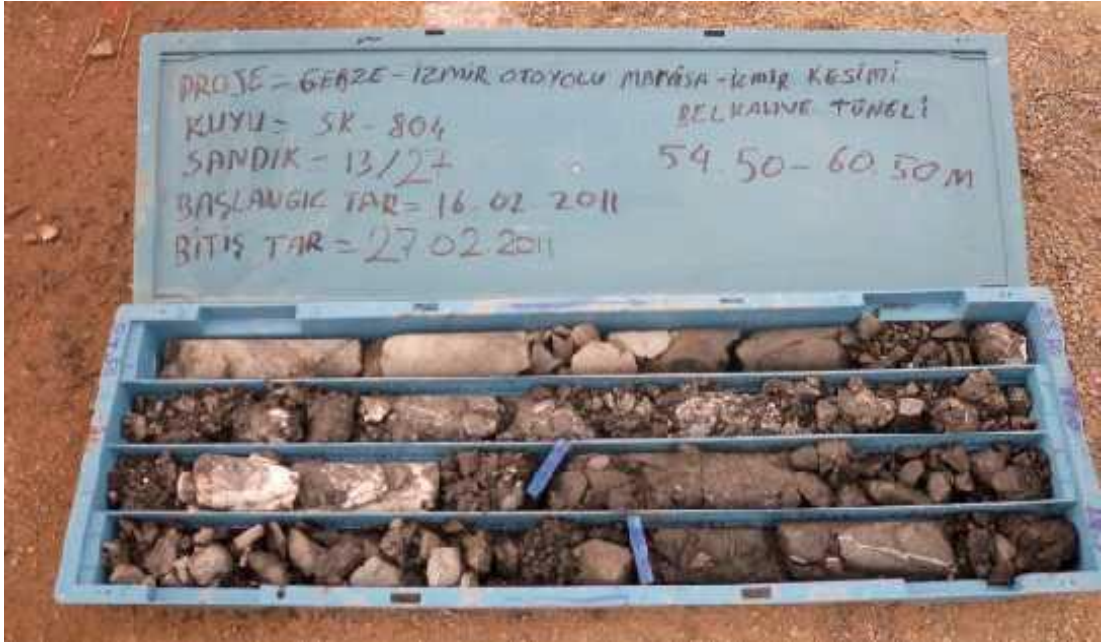 PROJE = GEBZE - İZMİR OTOYOLU MANİSA - İZMİR KESİMİ
BELKAHVE TÜNELİ
KUYU = SK - 804
SANDIK = 13/27
54.50 - 60.50 M
BAŞLANGIC TAR = 16.02.2011
BİTİŞ TAR = 27.02.2011